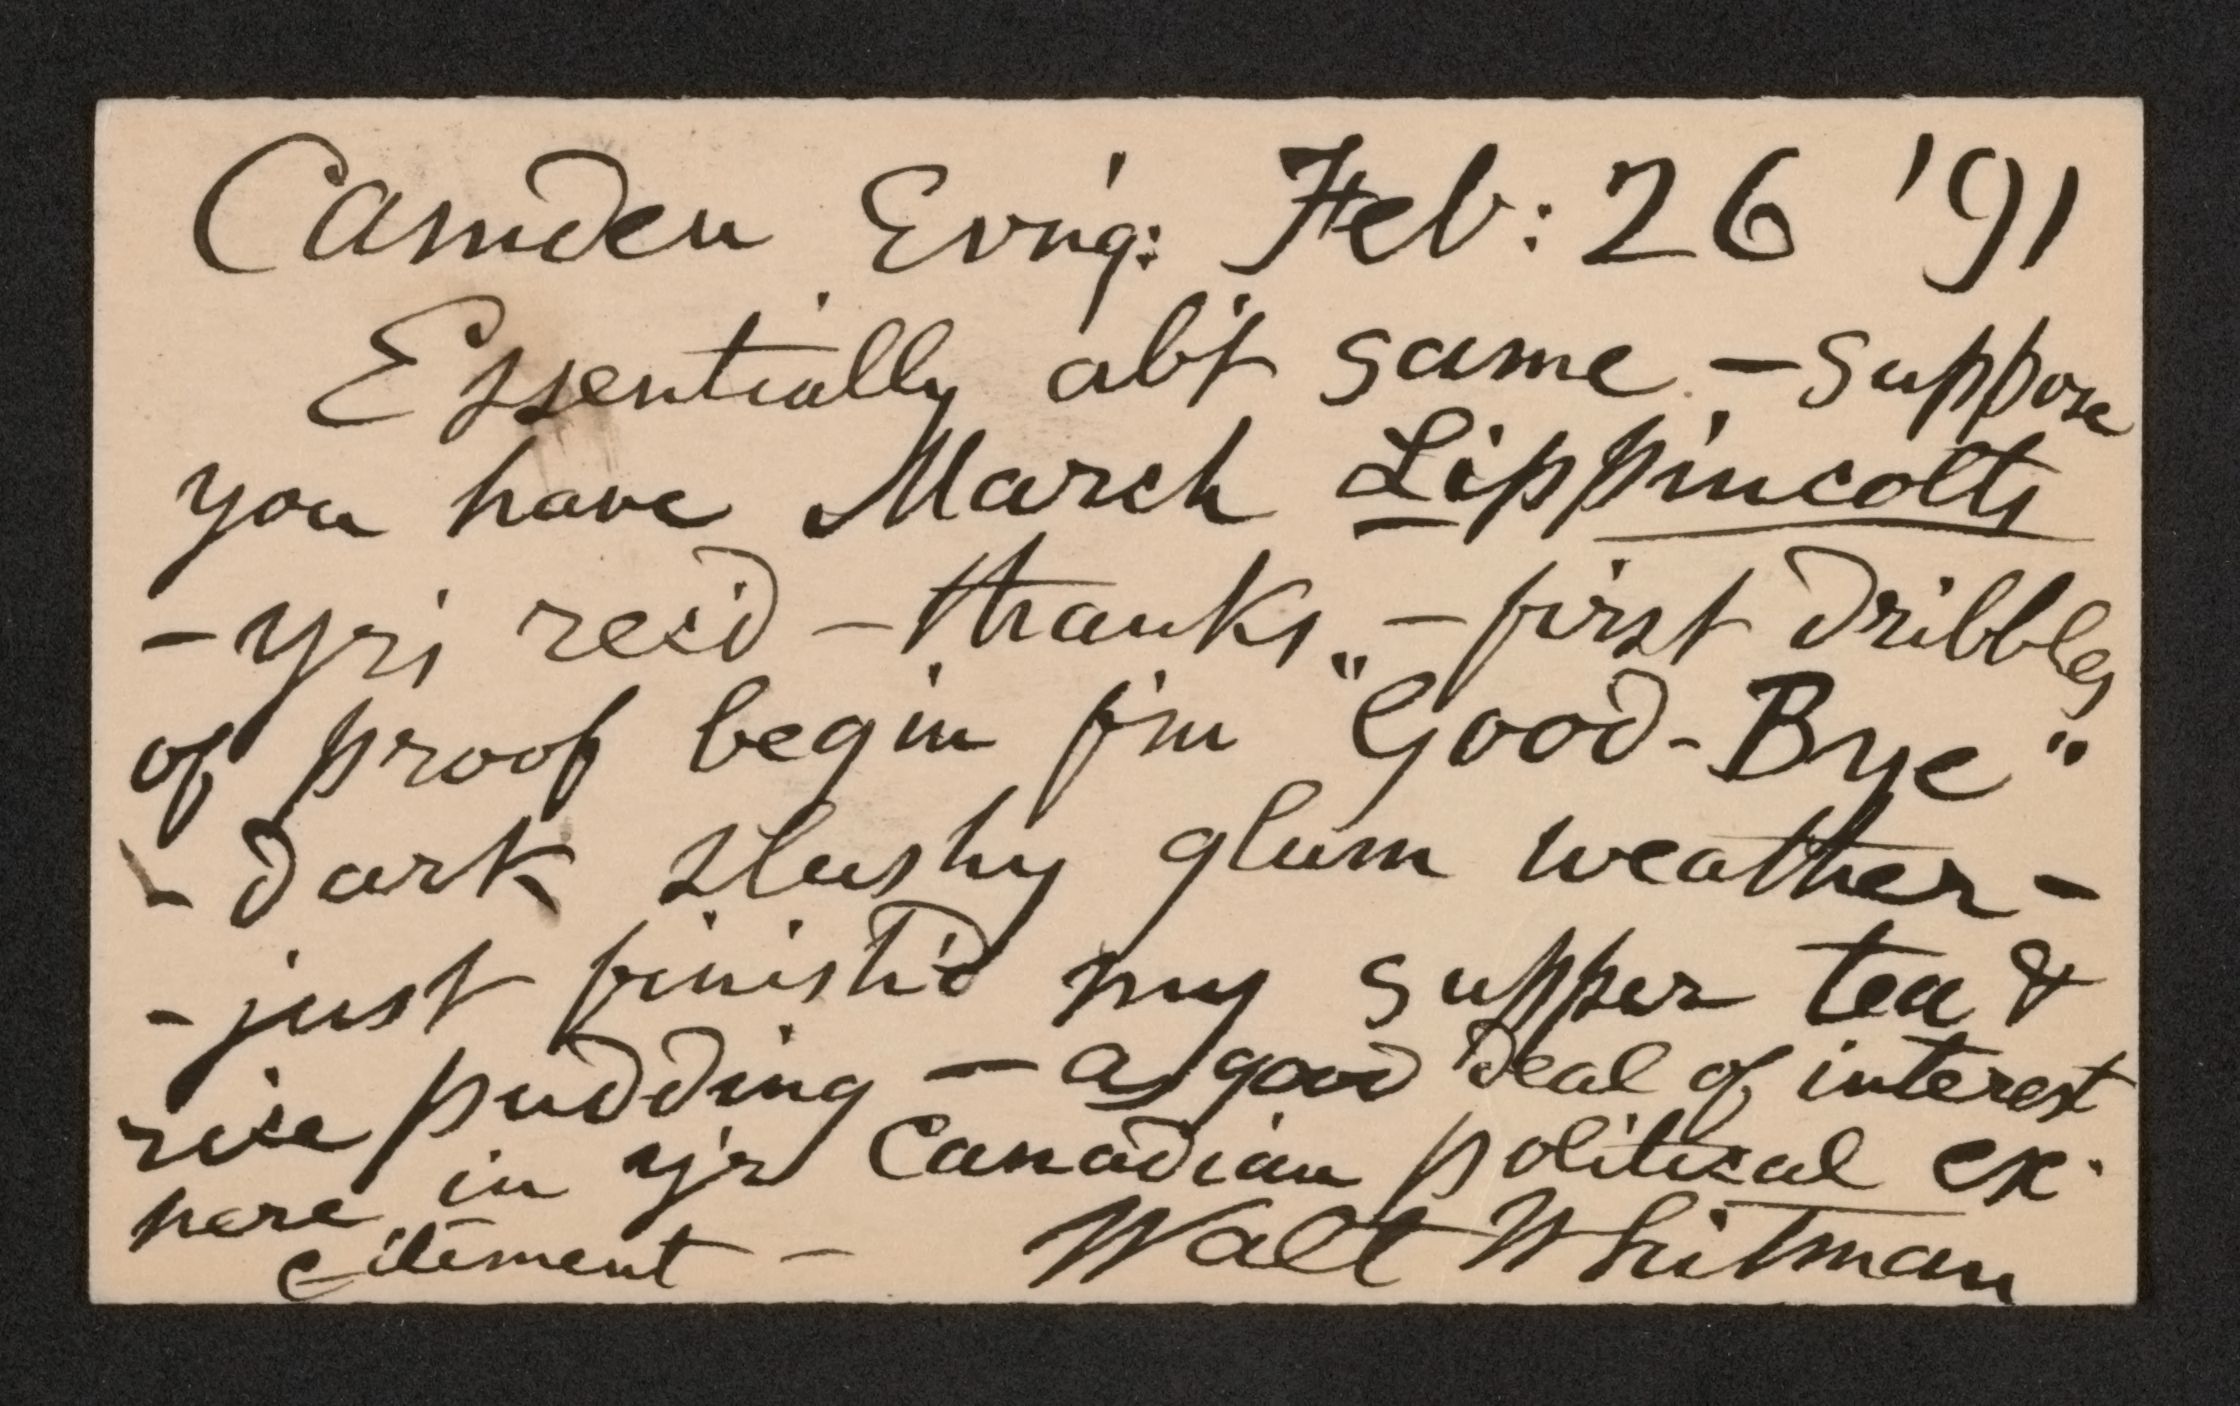 Camden Evn'g: Feb: 26 '91
Essentially ab't same – suppose
you have March Lippincotts
– yrs rec'd – thanks – first dribbles
of proof begin f'm "Good-Bye"
– dark slushy glum weather –
– just finish'd my supper tea &
rice pudding – a good deal of interest
here in y'r Canadian political ex-
citement – Walt Whitman